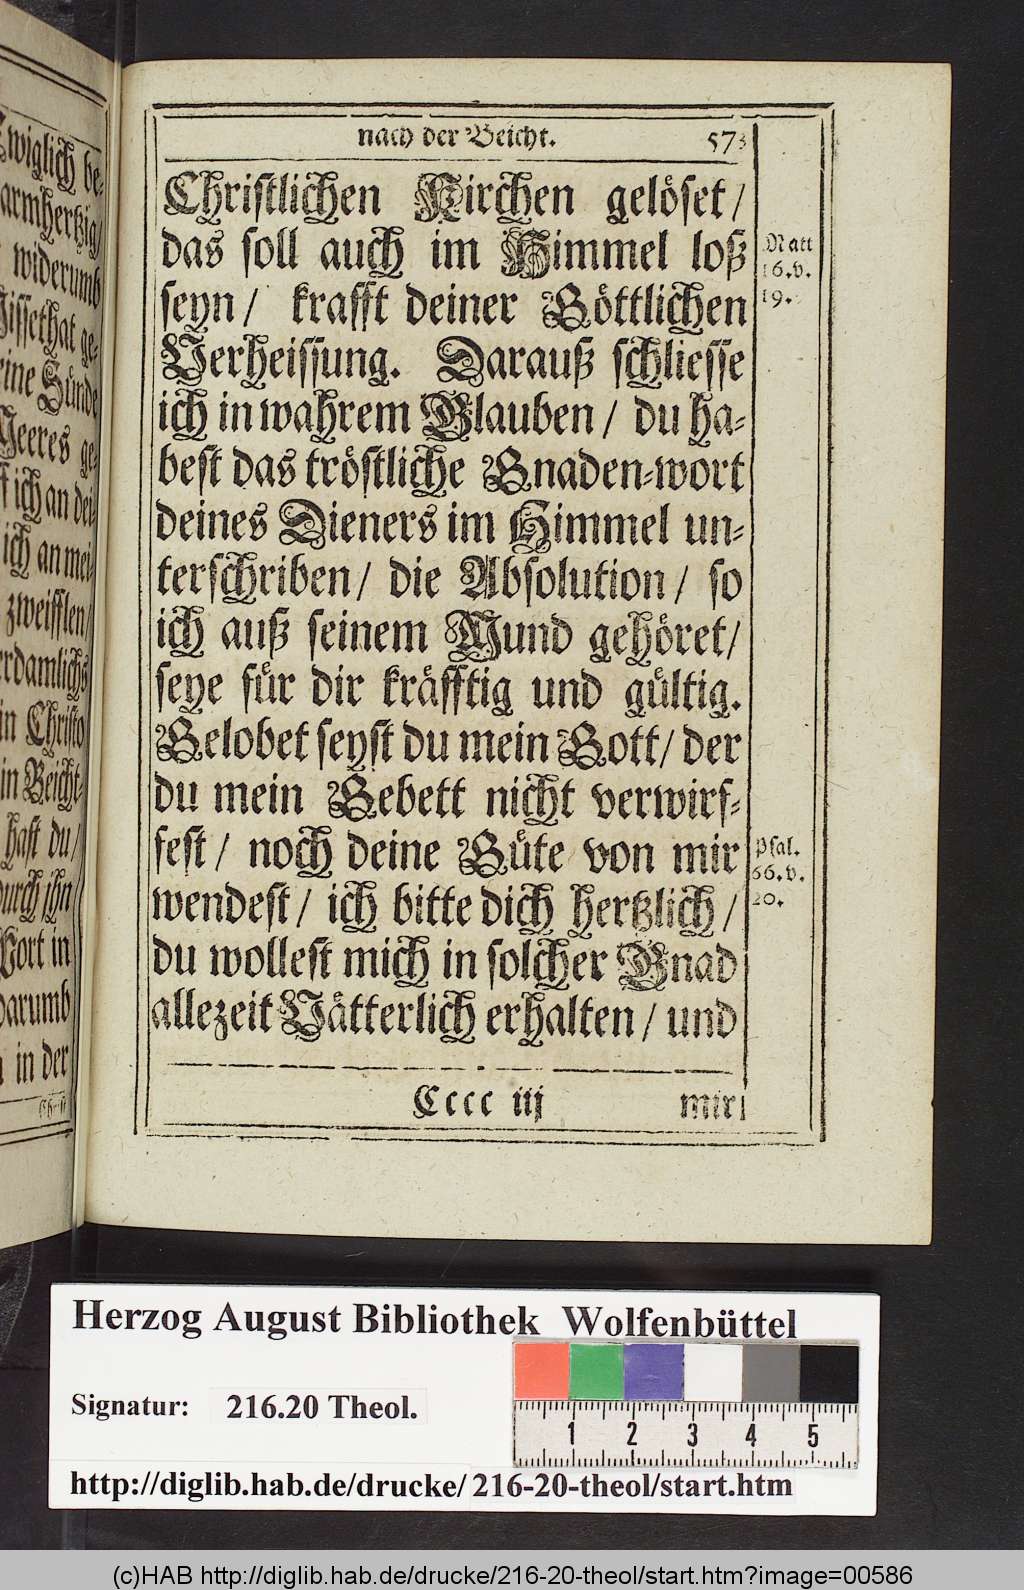 wiglich be-
armhertzig/
widerumb
issethat ge-
eine Sünde
Meeres ge-
ff ich an dei-
ich an mei-
zweifflen/
erdamlichs
in Christo
in Beicht-
hast du/
durch ihn
Wort in
darumb
in der
Christ
nach der Beicht. 573
Christlichen Kirchen gelöset/
das soll auch im Himmel loß
seyn/ krafft deiner Göttlichen
Verheissung. Darauß schliesse
ich in wahrem Glauben/ du ha-
best das tröstliche Gnaden-wort
deines Dieners im Himmel un-
terschriben/ die Absolution/ so
ich auß seinem Mund gehöret/
seye für dir kräfftig und gültig.
Gelobet seyst du mein Gott/ der
du mein Gebett nicht verwirf-
fest/ noch deine Güte von mir
wendest/ ich bitte dich hertzlich/
du wollest mich in solcher Gnad
allezeit Vätterlich erhalten/ und
Cccc iij mir
Matt
16.v.
19.
Psal.
66.v.
20.
Herzog August Bibliothek Wolfenbüttel
Signatur: 216.20 Theol.
1 2 3 4 5
http://diglib.hab.de/drucke/216-20-theol/start.htm
(c)HAB http://diglib.hab.de/drucke/216-20-theol/start.htm?image=00586